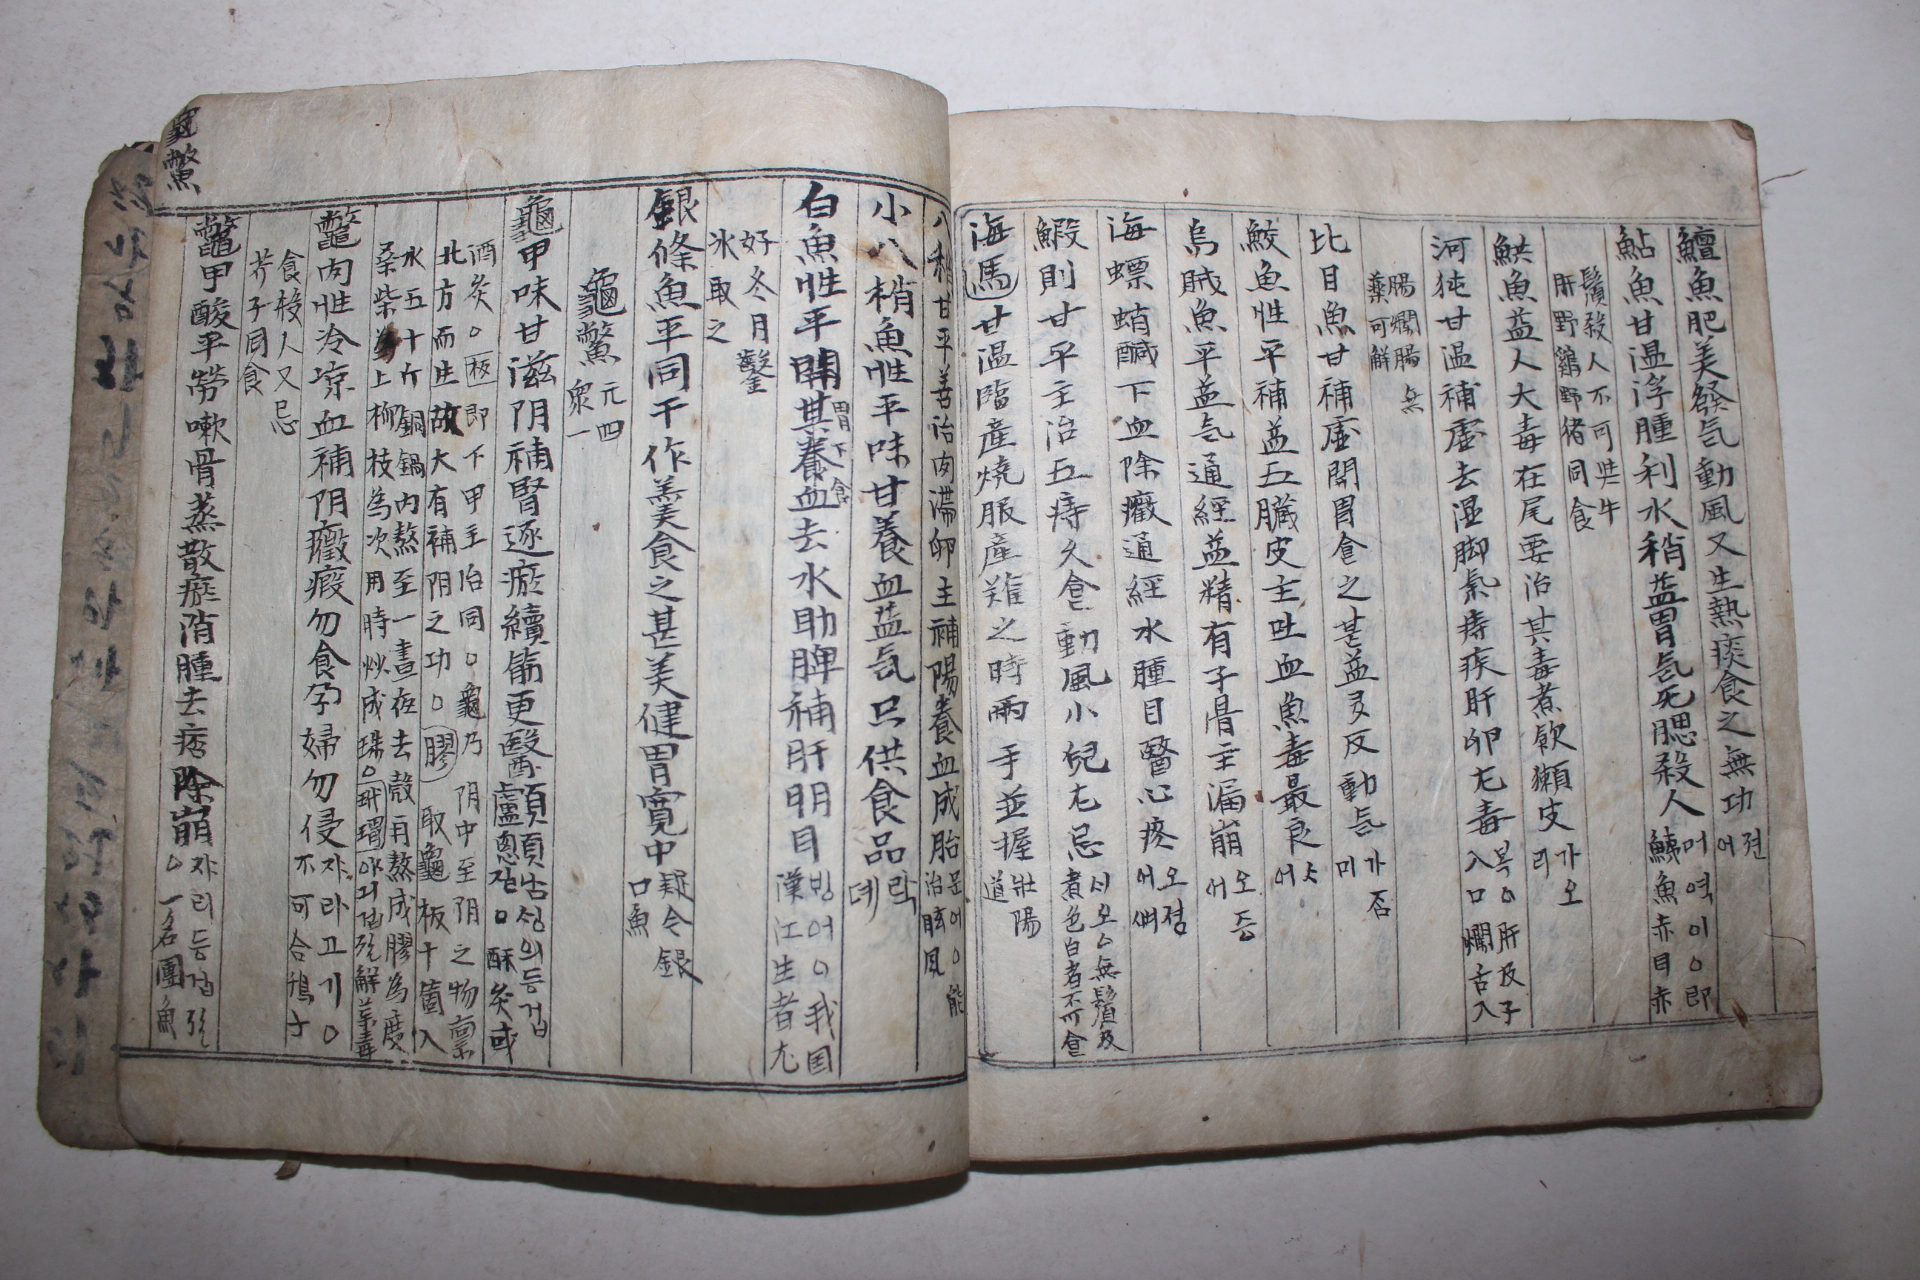 鱣魚肥美發气動風又生熱痰食之無功 젼어
鮎魚甘温浮腫利水稍益胃气无腮殺人 머여기○即鮧魚赤目赤
鬚殺人不可與牛肝野鷄野猪同食
魟魚益人大毒在尾要治其毒煮飮獺皮 가오리
河㹠甘温補虛去湿脚氣痔疾肝卵尤毒 복○肝及子入口爛舌入
腸爛腸無藥可解
比目魚甘補虛開胃食之甚益多反動气 가미
鮫魚性平補益五臟皮主吐血魚毒最良
烏賊魚平益气通經益精有子骨主漏崩 오증어
海螵蛸醎下血除癥通經水腫目醫心疼 오젹어
鰕則甘平主治五痔久食動風小兒尤忌 無鬚及煮色白者不可食
海馬甘温臨產燒服產難之時兩手並握 壯陽道
八稍甘平善治肉滯卵主補陽養血成胎 문어○能治眩風
小八稍魚性平味甘養血益气只供食品 낙데
白魚性平開其胃下食養血去水助脾補肝明目 빙어○我国漢江生者尤
好冬月鑿氷取之
銀條魚平同干作羹食之甚美健胃寬中 疑今銀口魚
龜鱉 元四衆一
龜甲味甘滋阴補腎逐瘀續筋更醫顱顖 남셩의등겁질○酥炙或
酒炙○板即下甲主治同○龜乃阴中至阴之物禀北方而生故大有補阴之功○膠取龜板十箇入
水五十斤銅鍋内熬至一晝夜去殼再熬成膠為度桑柴為上柳枝為次用時炒成珠○玳瑁 解
鱉肉性冷凉血補阴癥瘕勿食孕婦勿侵 자라고기○不可合鴨子
食殺人又忌芥子同食
鱉甲酸平勞嗽骨蒸散瘀消腫去痞除崩 자라등겁질○一名團魚
龜鱉